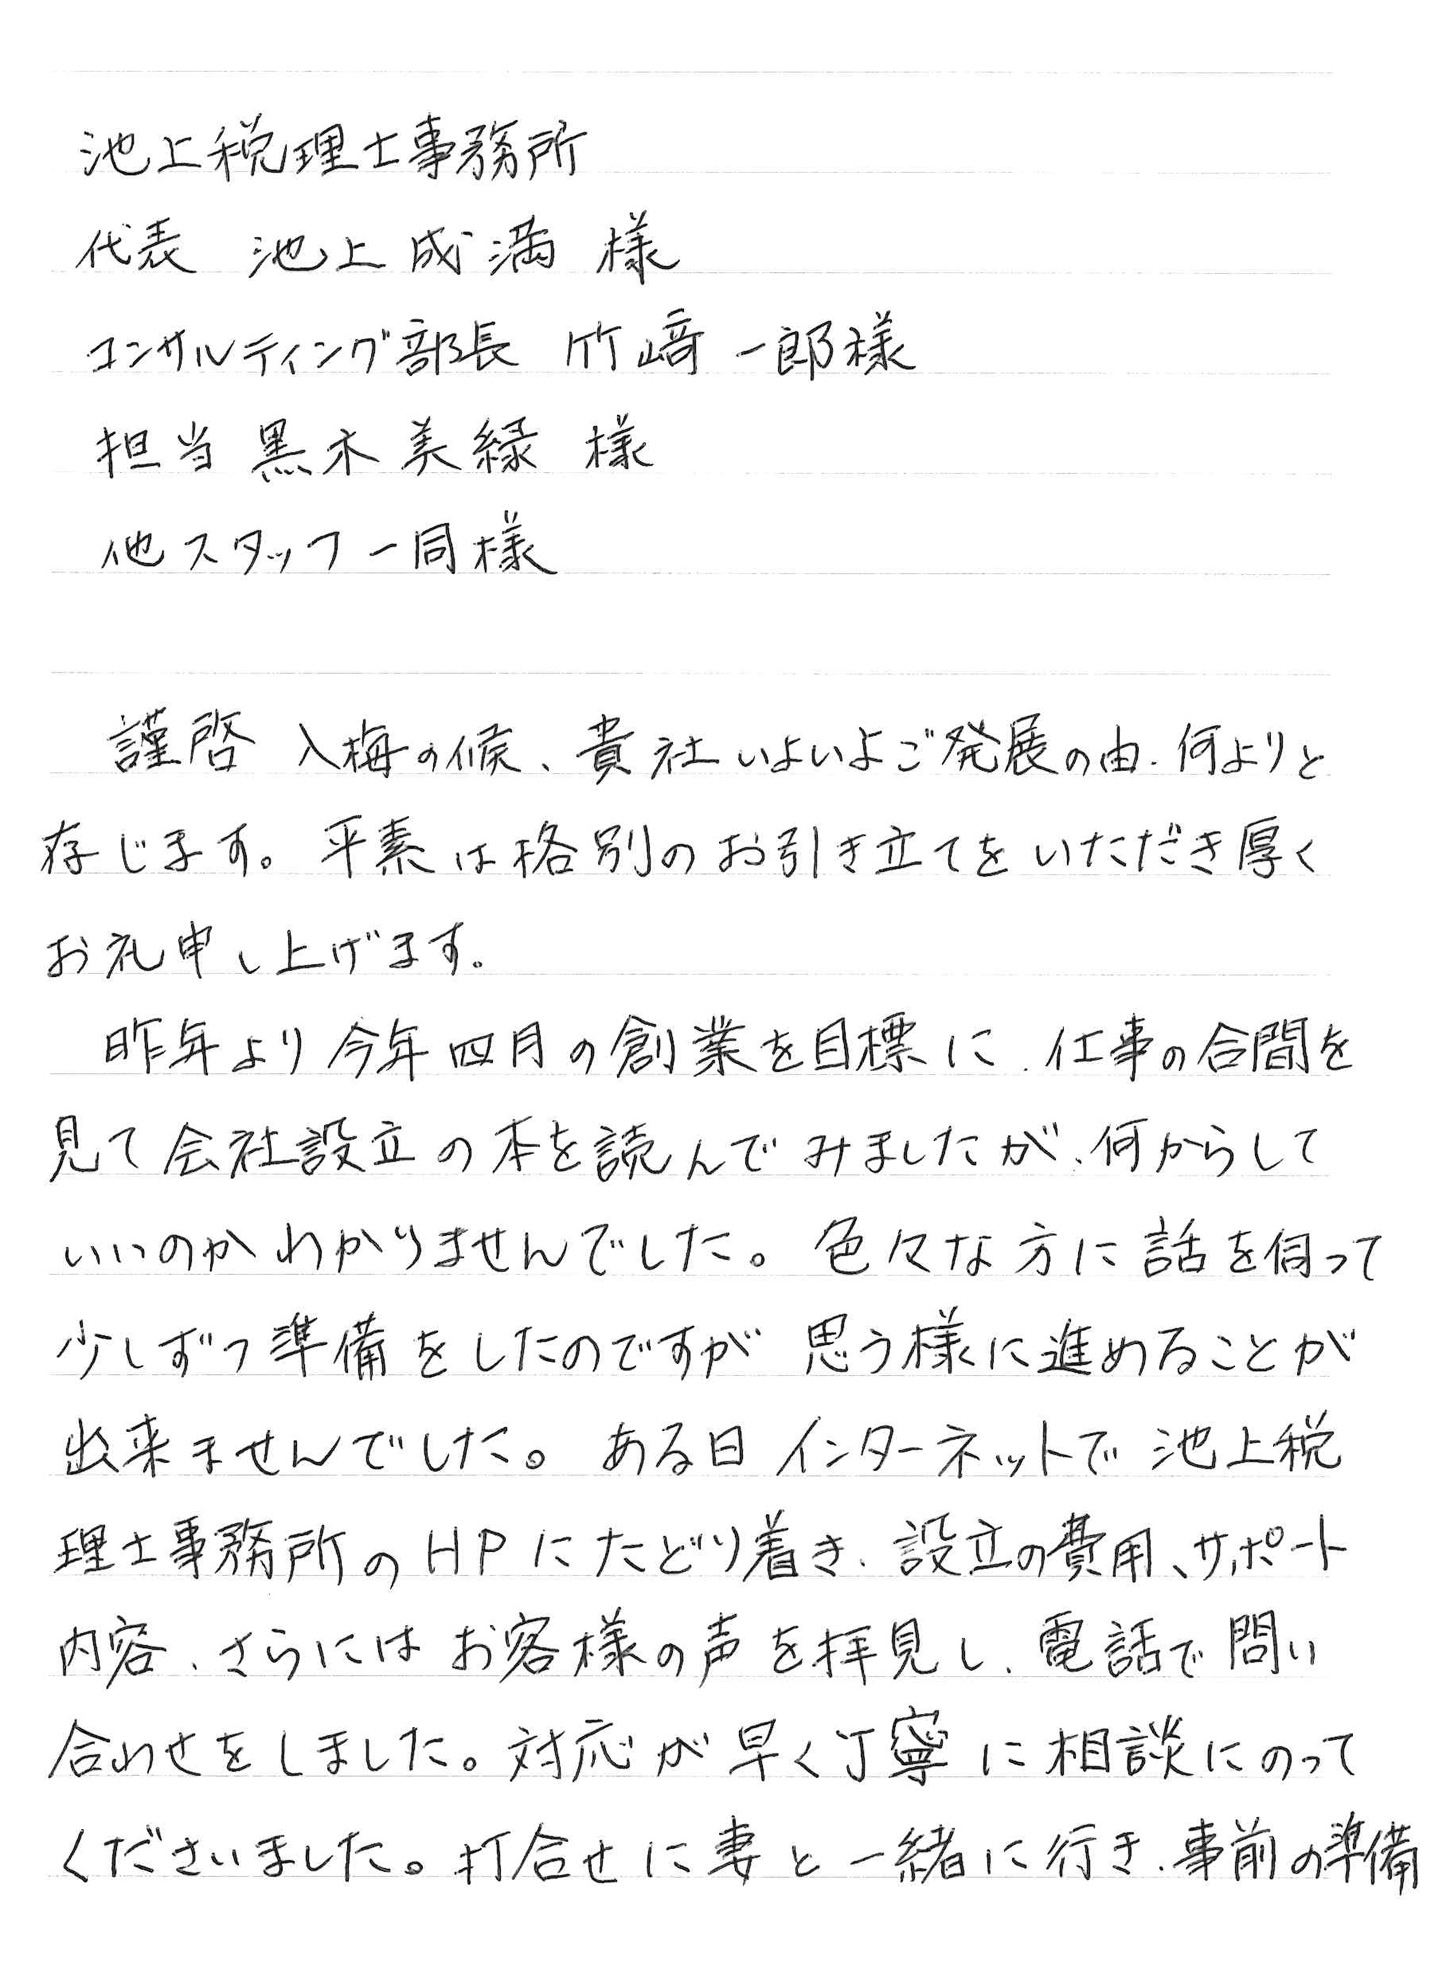 池上税理士事務所
代表 池上成満 様
コンサルティング部長 竹﨑一郎様
担当 黒木美緑 様
他スタッフ一同様
謹啓 入梅の候、貴社いよいよご発展の由、何よりと
存じます。平素は格別のお引き立てをいただき厚く
お礼申し上げます。
昨年より今年四月の創業を目標に、仕事の合間を
見て会社設立の本を読んでみましたが、何からして
いいのかわかりませんでした。色々な方に話を伺って
少しずつ準備をしたのですが 思う様に進めることが
出来ませんでした。ある日インターネットで池上税
理士事務所のHPにたどり着き、設立の費用、サポート
内容、さらにはお客様の声を拝見し、電話で問い
合わせをしました。対応が早く丁寧に相談にのって
くださいました。打合せに妻と一緒に行き、事前の準備